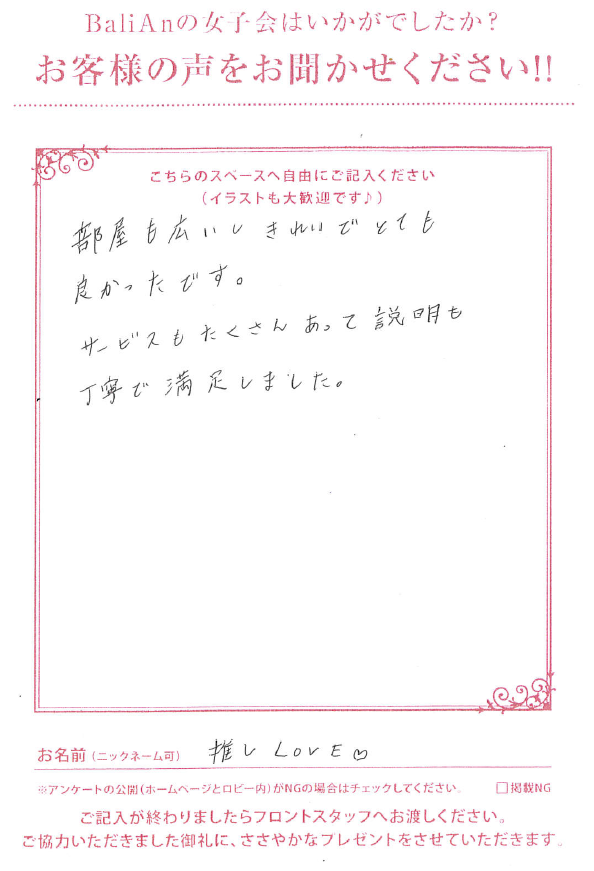 BaliAnの女子会はいかがでしたか？
お客様の声をお聞かせください!!
こちらのスペースへ自由にご記入ください
（イラストも大歓迎です♪）
部屋も広いしきれいでとても
良かったです。
サービスもたくさんあって説明も
丁寧で満足しました。
お名前（ニックネーム可） 推しLOVE♡
※アンケートの公開（ホームページとロビー内）がNGの場合はチェックしてください。 □掲載NG
ご記入が終わりましたらフロントスタッフへお渡しください。
ご協力いただきました御礼に、ささやかなプレゼントをさせていただきます。